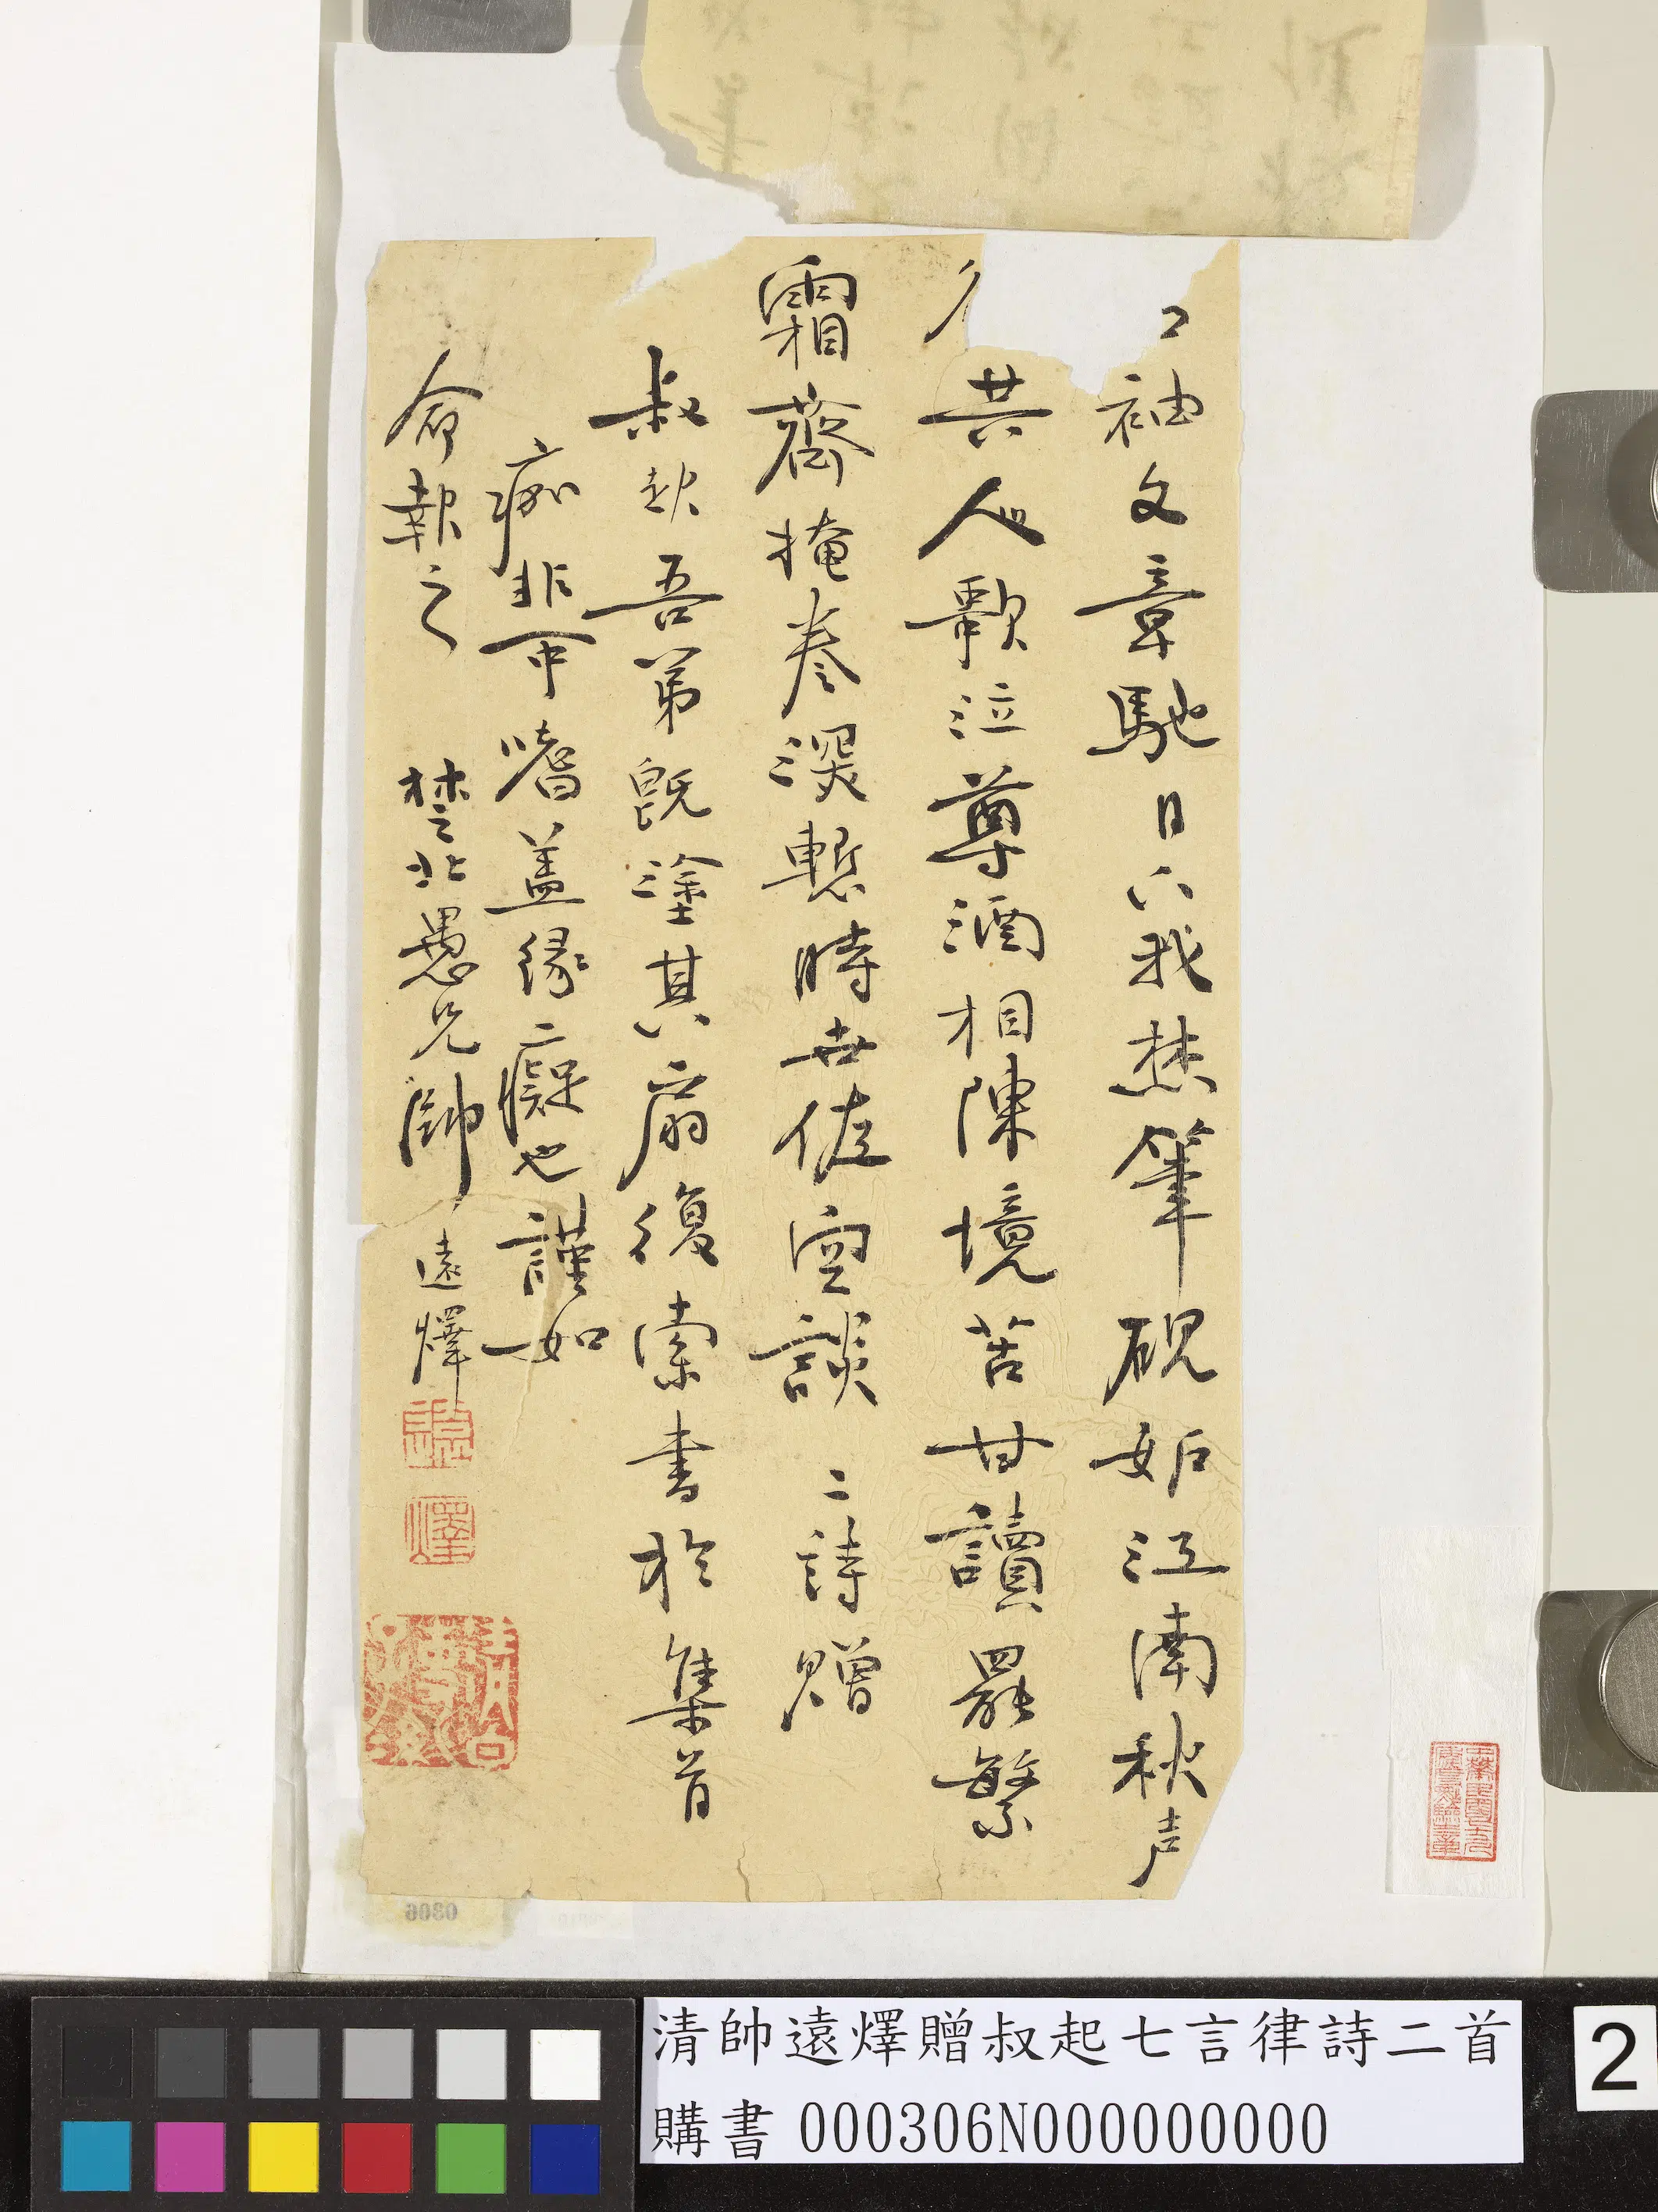 袖文章馳日下我焚筆硯妬江南秋声
共人歌泣尊酒相陳境苦甘讀罷繁
霜齋掩卷深慙時世佐空談 二詩贈
叔起吾弟既塗其扇復索書於集首
痂非命嗜蓋緣癡也謹如
命報之 楚北愚兄帥遠燡
清帥遠燡贈叔起七言律詩二首
購書 000306N000000000
2